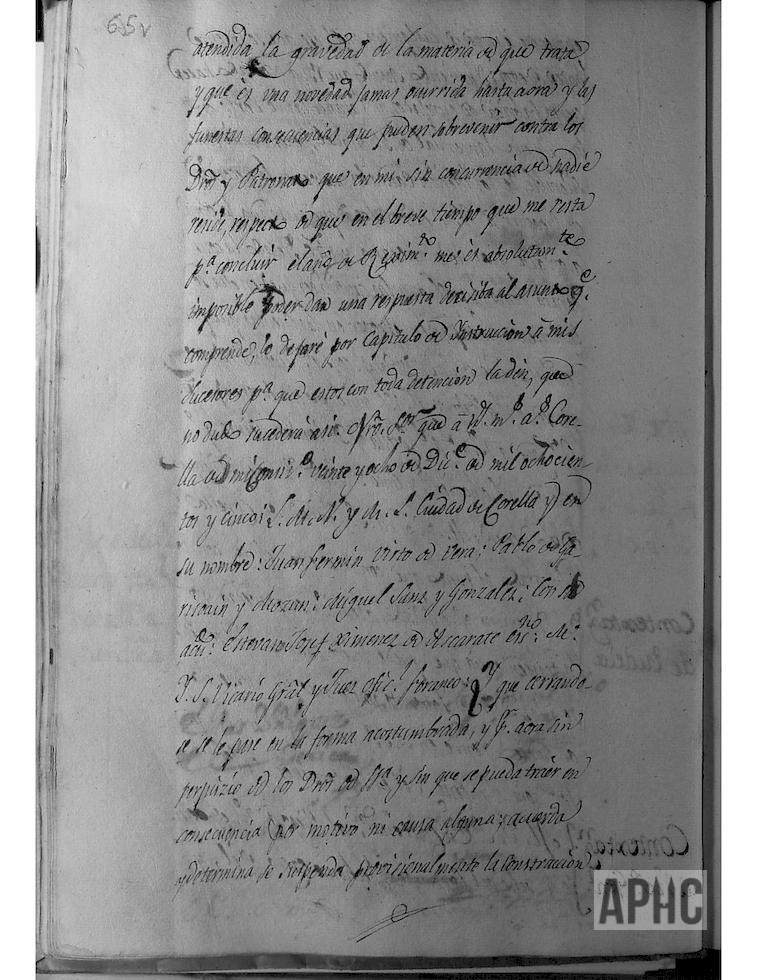 65v
atendida la gravedad de la materia de que trata
y que es una novedad jamas ocurrida hasta aora y las
funestas consecuencias que pueden sobrevenir contra los
Dros y Patronato que en mi sin concurrencia de nadie
reside, respecto de que en el breve tiempo que me resta
pª concluir el año de Regimto. me es absolutamte
imposible poder dar una respuesta decisiba al asunto qe.
comprende, lo dejaré por Capitulo de Instruccion a mis
sucesores pª que estos con toda detencion la den, que
no dudo sucederá asi. Nro. Sor que a
de mi veinte y ocho de Dice. de mil ochocien
tos y cinco: L. M. N. y M. L. Ciudad de Corella y en
su nombre: Juan Fermin Virto de Vera: Pablo de Ga
risoain y Miguel Sanz y Gonzalez: Con su
acdo. Estevan Josef Ximenez de Ascarate Srio. M.
I. S. Vicario Gral y Juez ofic. foraneo: Y que cerrando
se se le pase en la forma acostumbrada, y P. aora sin
perjuizio de los Dros de Sª y sin que se pueda traer en
consecuencia por motivo ni causa alguna; acuerda
y determina se suspenda provisionalmente la Construccion
APHC